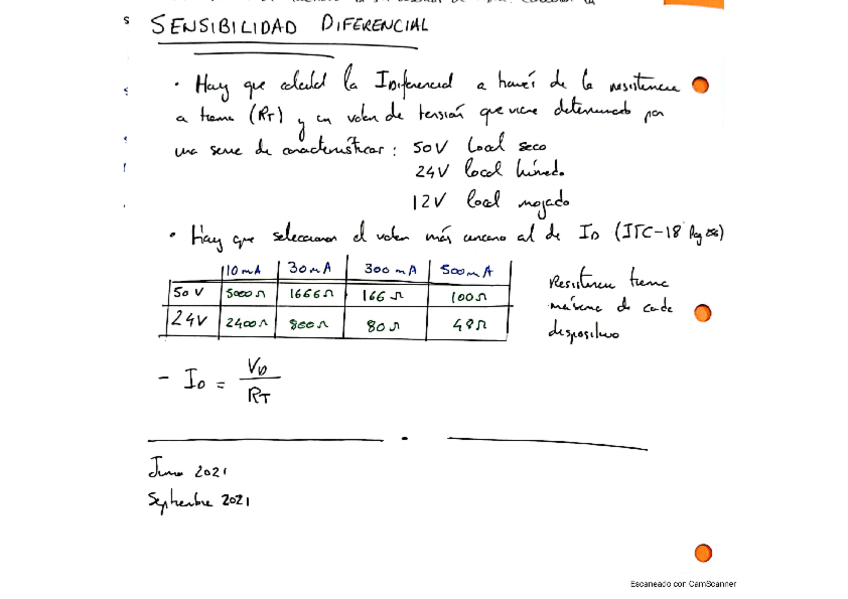 SENSIBILIDAD DIFERENCIAL
· Hay que calcular la IDiferencial a través de la resistencia
a tierra (RT) y un valor de tensión que viene determinado por
una serie de características: 50V Local seco
24V local húmedo
12V local mojado
· Hay que seleccionar el valor más cercano al de ID (ITC-18 Pag
10mA 30mA 300mA 500mA
50V 5000Ω 1666Ω 166Ω 100Ω
24V 2400Ω 800Ω 80Ω 48Ω
Resistencia tierra
máxima de cada
dispositivo
- ID = VD / RT
Junio 2021
Septiembre 2021
Escaneado con CamScanner